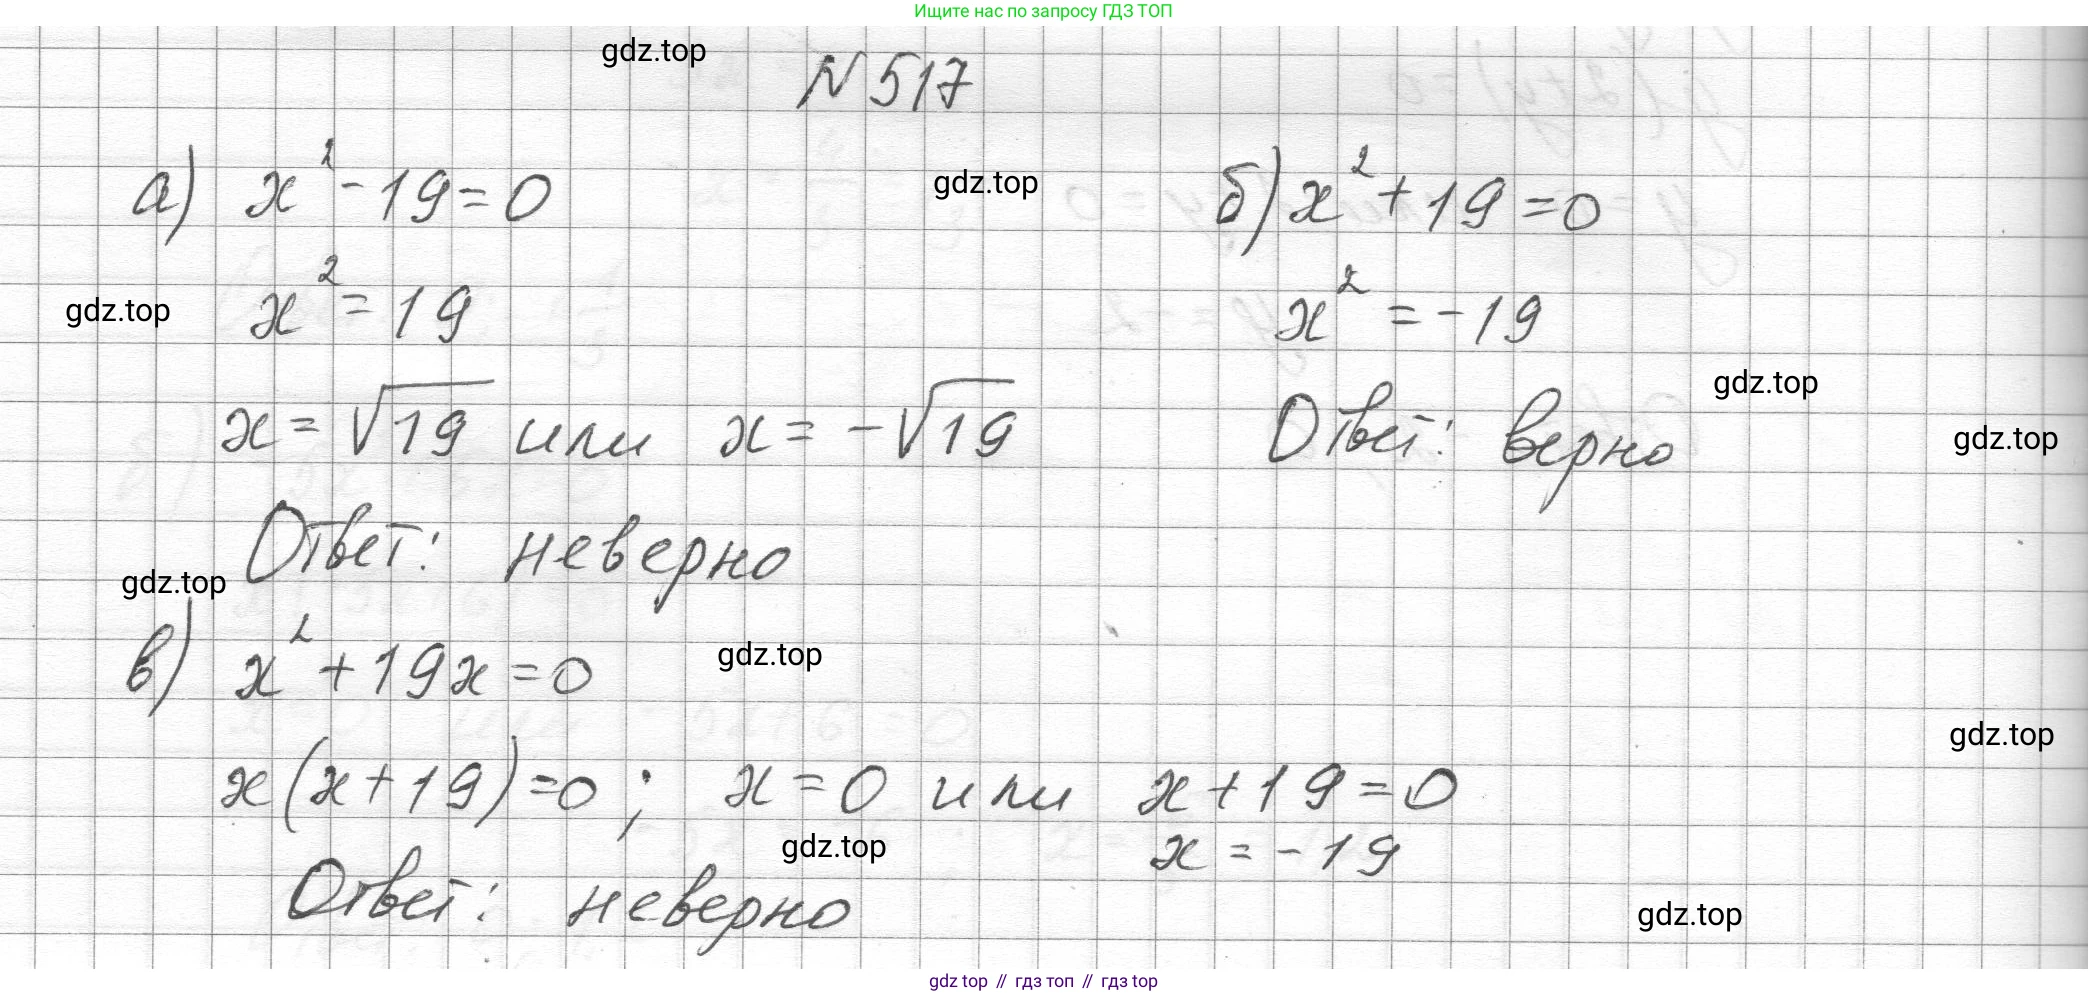 Ищите нас по запросу ГДЗ ТОП
gdz.top
N 517
а) x² - 19 = 0
gdz.top
б) x² + 19 = 0
gdz.top
x² = 19
x² = -19
gdz.top
x = √19 или x = -√19
Ответ: верно
gdz.top
Ответ: неверно
gdz.top
в) x² + 19x = 0
gdz.top
gdz.top
x(x + 19) = 0; x = 0 или x + 19 = 0
gdz.top
x = -19
Ответ: неверно
gdz.top
gdz top // гдз топ // гдз top